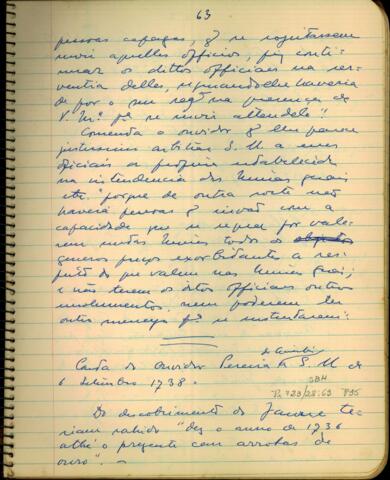 63
pessoas capazes, q̃ se sogeitassem
servir aquelles officios, fiz conti-
nuar os dittos officiais na ser-
ventia delles,
de por o seu reqto na presença de
V. Mge. pa se servir attendelo".
Comenta o ouvidor q̃ lhe parece
justissimo S. M. a esses
oficiais a propina estabelecida
na intendencia das Minas gerais
"porque de outra sorte não
haverá pessoas q̃ sirvão com a
capacidade que se requer por vale-
rem nestas Minas todos os
generos preços exorbitantes a res-
peito do que valem nas Minas gerais,
e não terem os ditos officiais outros
emolumentos nem poderem ter
outras pa se sustentarem:
Carta do Ouvidor Pereira a S. M. de
de Cuiabá
6 setembro 1738.
SBH
Pt 423/28:63 P35
Do descobrimento do te-
riam sahido "dez o anno de 1736
athé o prezente cem arrobas de
ouro".